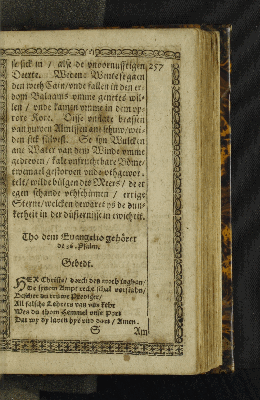 257
se sick in / alse de unvornufftigen
Deerte. Wehe en! Wente se gaen
den wech Cain / unde fallen in den er-
dom Balaams umme genetes wil-
len / unde kamen umme in dem up-
rore Kore. Disse unflate brassen
van juwen Almissen ane schuw / wei-
den sick sülvest. Se syn Wulcken
ane Water van dem Winde umme
gedreven / kale unfruchtbare Böme
twemael gestorven unde uthgewor-
telt / wilde bülgen des Meers / de er
egen schande uthschümen / errige
Sterne / welcken vewaret ys de dun-
kerheit in der düsternisse in ewicheit.
Tho dem Euangelio gehöret
de 36. Psalm.
Gebedt.
HEr Christe / dorch den moth inghan /
De synem Ampt recht schal vorstahn /
Bescher uns truwe Prediger /
All falsche Lehrers van uns kehr
Wes du thom Hemmel unse Port
Dat wy dy laven hyr und dort / Amen.
S Am